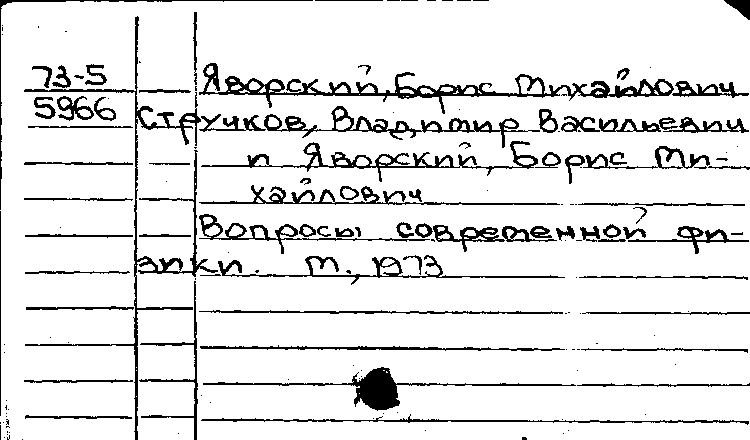 73-5 Яворский, Борис Михайлович
5966 Стручков, Владимир Васильевич
и Яворский, Борис Ми-
хайлович
Вопросы современной фи-
зики. М., 1973